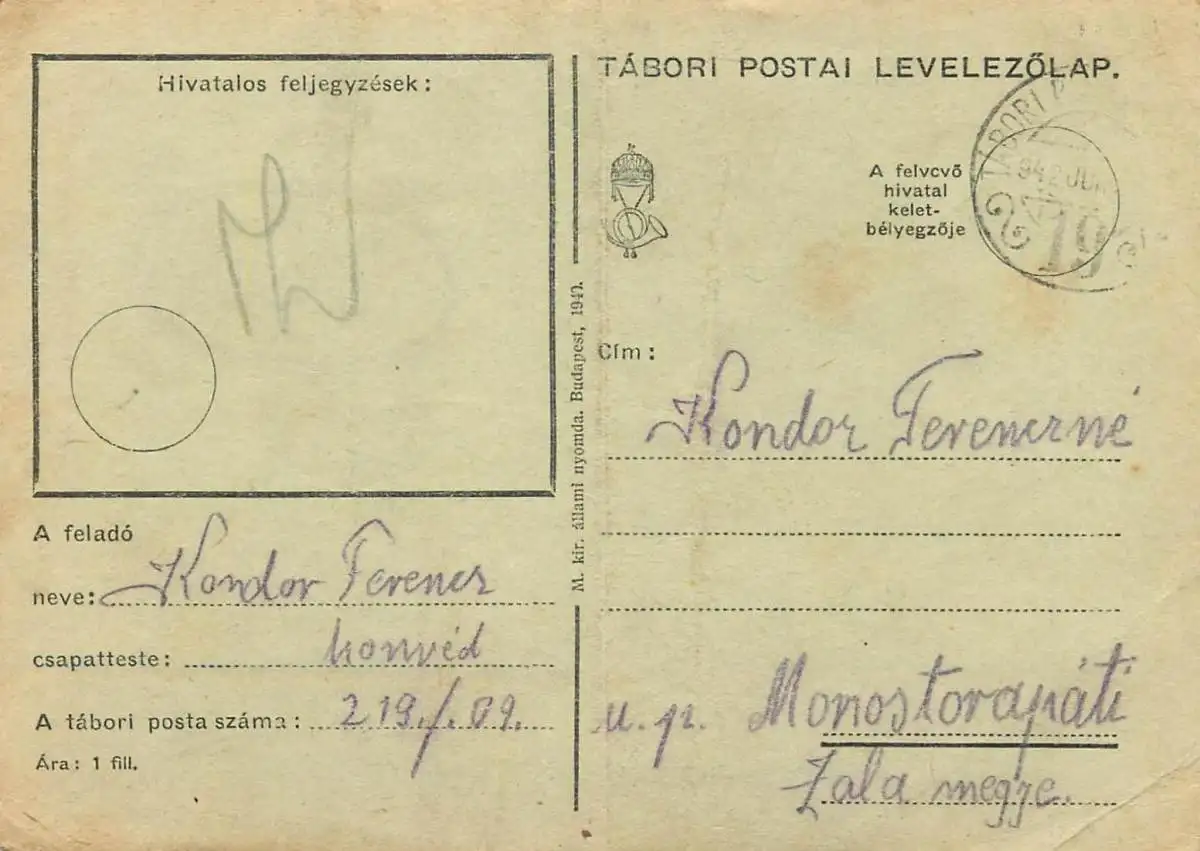 Hivatalos feljegyzések:
A feladó
neve: Kondor Ferencz
csapatteste: honvéd
A tábori posta száma: 219./.09.
Ára: 1 fill.
M. kir. állami nyomda. Budapest, 1940.
TÁBORI POSTAI LEVELEZŐLAP.
A felvevő
hivatal
kelet-
bélyegzője
TÁBORI
942 JUN
19
Cím:
Kondor Ferenczné
u. p. Monostorapáti
Zala megye.